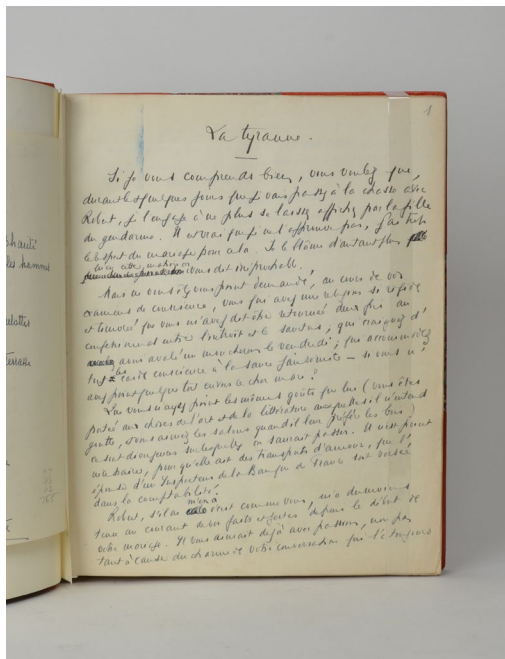 1
La tyranne.
Si je vous comprends bien, vous voulez que,
durant les quelques jours que je vais passer à la chasse avec
Robert, je l'engage à ne plus se laisser afficher par la fille
du gendarme. Il est vrai que je ne l'approuve pas, j'ai trop
l'esprit du mariage pour cela. Je le blâme d'autant plus
que vous êtes irréprochable.
Mais ne vous êtes vous point demandé, au cours de vos
examens de conscience, vous qui avez une religion si rigide
et timorée que vous m'avez dit être retournée deux fois au
confessionnal entre l'introït et le sanctus; qui craignez d'
avoir avalé un moucheron le vendredi; qui accommodez
les cas de conscience à la sauce janséniste — si vous n'
avez point quelque tort envers ce cher mari?
Que vous n'ayez point les mêmes goûts que lui (vous êtes
portée aux choses de l'art et de la littérature auxquelles il n'entend
goutte, vous aimez les salons quand il leur préfère les bois)
ce sont divergences sur lesquelles on saurait passer. Il n'est point
nécessaire, pour qu'elle ait des transports d'amour, que l'
épouse d'un Inspecteur de la Banque de France soit versée
dans la comptabilité.
Robert, s'il m'a
tenu au courant de vos faits et gestes depuis le début de
votre mariage. Il vous aimait déjà avec passion, non pas
tant à cause du charme de votre conversation qui l'a toujours
Shauté
les hommes